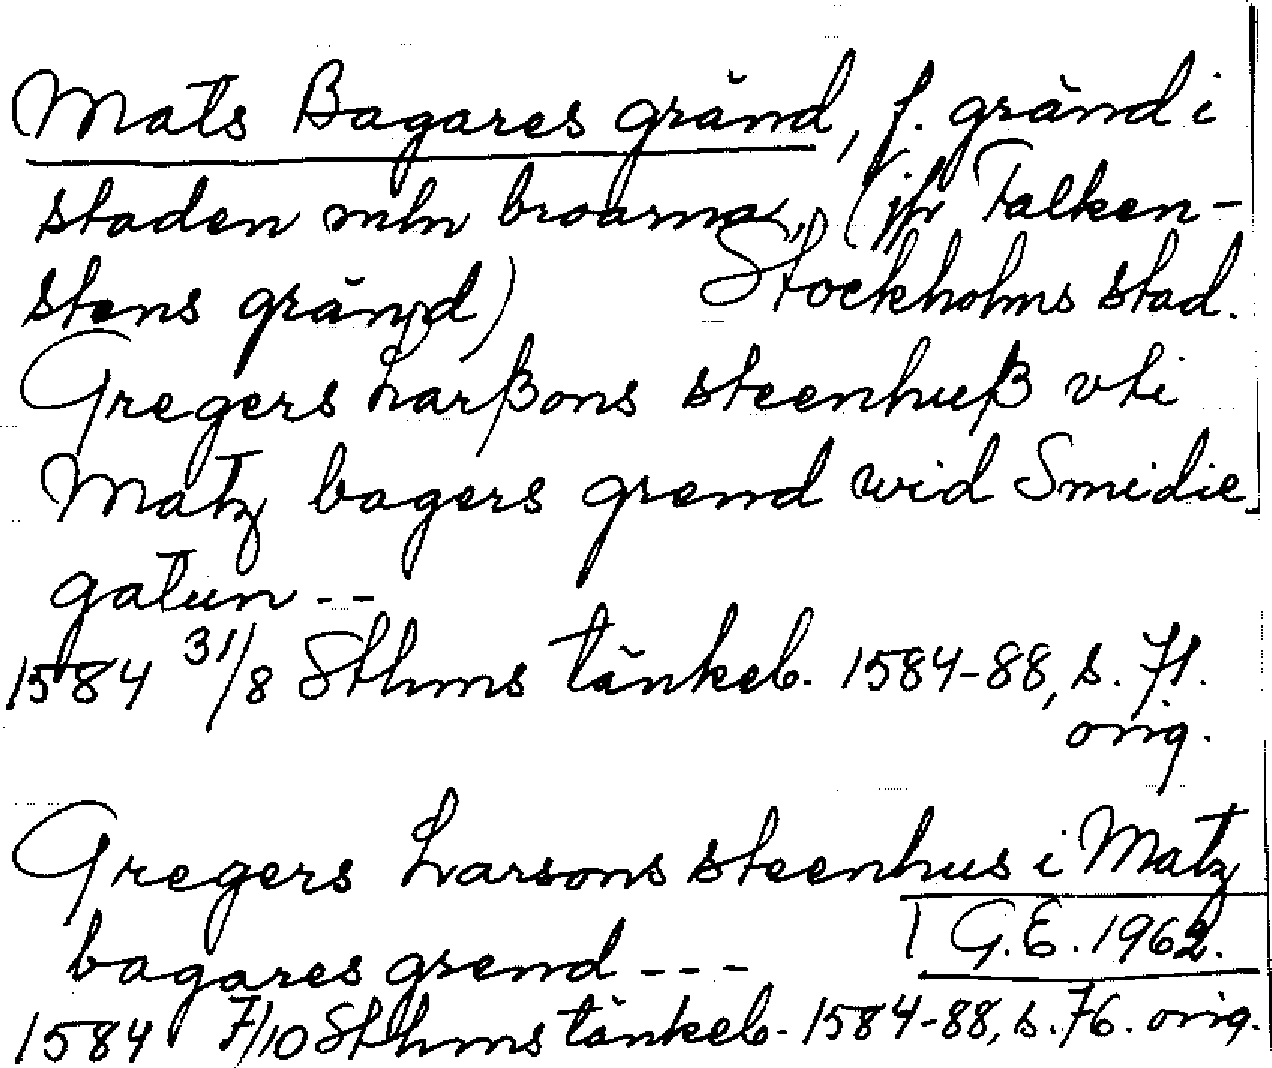 Mats Bagares gränd, f. gränd i
staden mln broarna, (jfr Falken-
stens gränd) Stockholms stad.
Gregers Larßons steenhuß vti
Matz bagers grend wid Smidie
gatun --
1584 31/8 Sthms tänkeb. 1584-88, s. 71.
orig.
Gregers Larsons steenhus i Matz
bagares grend ---
G.E. 1962.
1584 7/10 Sthms tänkeb. 1584-88, s. 76. orig.